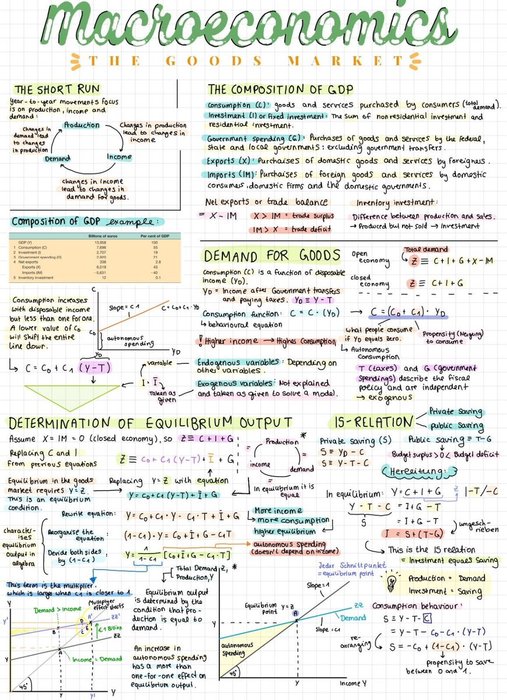 Macroeconomics
THE GOODS MARKET
THE SHORT RUN
Year-to-year movements focus
is on production, income and
demand:
Production
Changes in
demand lead
to changes
in production
Changes in production
lead to changes in
income.
Demand
Income
Changes in income
lead to changes in
demand for goods.
THE COMPOSITION OF GDP
Consumption (C): goods and services purchased by consumers (total demand).
Investment (I) or fixed investment: The sum of nonresidential investment and
residential investment.
Government spending (G): Purchases of goods and services by the federal,
state and local governments: excluding government transfers.
Exports (X): Purchases of domestic goods and services by foreigners.
Imports (IM): Purchases of foreign goods and services by domestic
consumers, domestic firms and the domestic governments.
Net exports or trade balance
= X - IM
X > IM = trade surplus
IM > X = trade deficit
Inventory investment:
Difference between production and sales.
→ Produced but not sold → Investment
Composition of GDP example:
Billions of euros
Per cent of GDP
GDP (Y)
100
1 Consumption (C)
2 Investment (I)
3 Government spending (G)
4 Net exports
Exports (X)
Imports (IM)
5 Inventory investment
Consumption increases
with disposable income
but less than one for one.
A lower value of C0
will shift the entire
line down.
C
slope = c1
C = C0 + C1 · YD
C0
autonomous
spending
YD
↳ C = C0 + C1 (Y-T)
DEMAND FOR GOODS
Consumption (C) is a function of disposable
income (YD).
YD = Income after Government transfers
and paying taxes. YD ≡ Y - T
Consumption function: C = C · (YD)
↳ behavioural equation
! Higher income → Higher consumption
Total demand
open
economy
Z ≡ C+I+G+X-IM
closed
economy
Z ≡ C+I+G
→ C = (C0 + C1) · YD
what people consume
if YD equals zero.
↳ Autonomous
consumption
Propensity (Neigung)
to consume
T (taxes) and G (government
spendings) describe the fiscal
policy and are independent
→ exogenous
variable
I = Ī
taken as
given
Endogenous variables: Depending on
other variables.
Exogenous variables: Not explained
and taken as given to solve a model.
DETERMINATION OF EQUILIBRIUM OUTPUT
Assume X = IM = 0 (closed economy), so Z ≡ C+I+G
Replacing C and I
From previous equations
Z ≡ C0 + C1 (Y-T) + Ī + G
Equilibrium in the goods
market requires Y = Z
This is an equilibrium
condition.
Replacing Z with equation
Y = C0 + C1 (Y-T) + Ī + G
Production
=
income
=
demand
In equilibrium it is
equal
Characterises
equilibrium
output in
algebra
Rewrite equation:
Y = C0 + C1 · Y - C1 · T + Ī + G
Reorganise the
equation:
(1-C1) · Y = C0 + Ī + G - C1T
Devide both sides
by (1-C1)
Y = 1/(1-C1) [C0 + Ī + G - C1T]
More income
→ more consumption
higher equilibrium
autonomous spending
(doesn't depend on income)
This term is the multiplier
which is large when C1 is closer to 1
Total Demand, Z,
Production, Y
Demand > Income
Multiplier
effect starts
ZZ'
ZZ
Income = Demand
45°
Y
Y'
Equilibrium output
is determined by the
condition that pro-
duction is equal to
demand.
An increase in
autonomous spending
has a more than
one-for-one effect on
equilibrium output.
Jeder Schnittpunkt =
equilibrium point
Slope = 1
Equilibrium
point
Y=Z
A
ZZ
Demand
slope = C1
autonomous
spending
45°
Y
Income Y
IS-RELATION
Private saving
public saving
Private Saving (S)
S ≡ YD - C
S ≡ Y - T - C
Public saving = T - G
Budget surplus >0< Budget deficit
Herleitung:
In equilibrium: Y = C + I + G
|-T/-C
Y - T - C = I + G - T
S = I + G - T
umgeschrieben
I = S + (T-G)
↳ This is the IS relation
= Investment equals Saving
Production = Demand
Investment = Saving
Consumption behaviour:
S = Y - T - C
rearranging
S = Y - T - C0 - C1 · (Y-T)
→ S = -C0 + (1-C1) · (Y-T)
propensity to save
between 0 and 1.